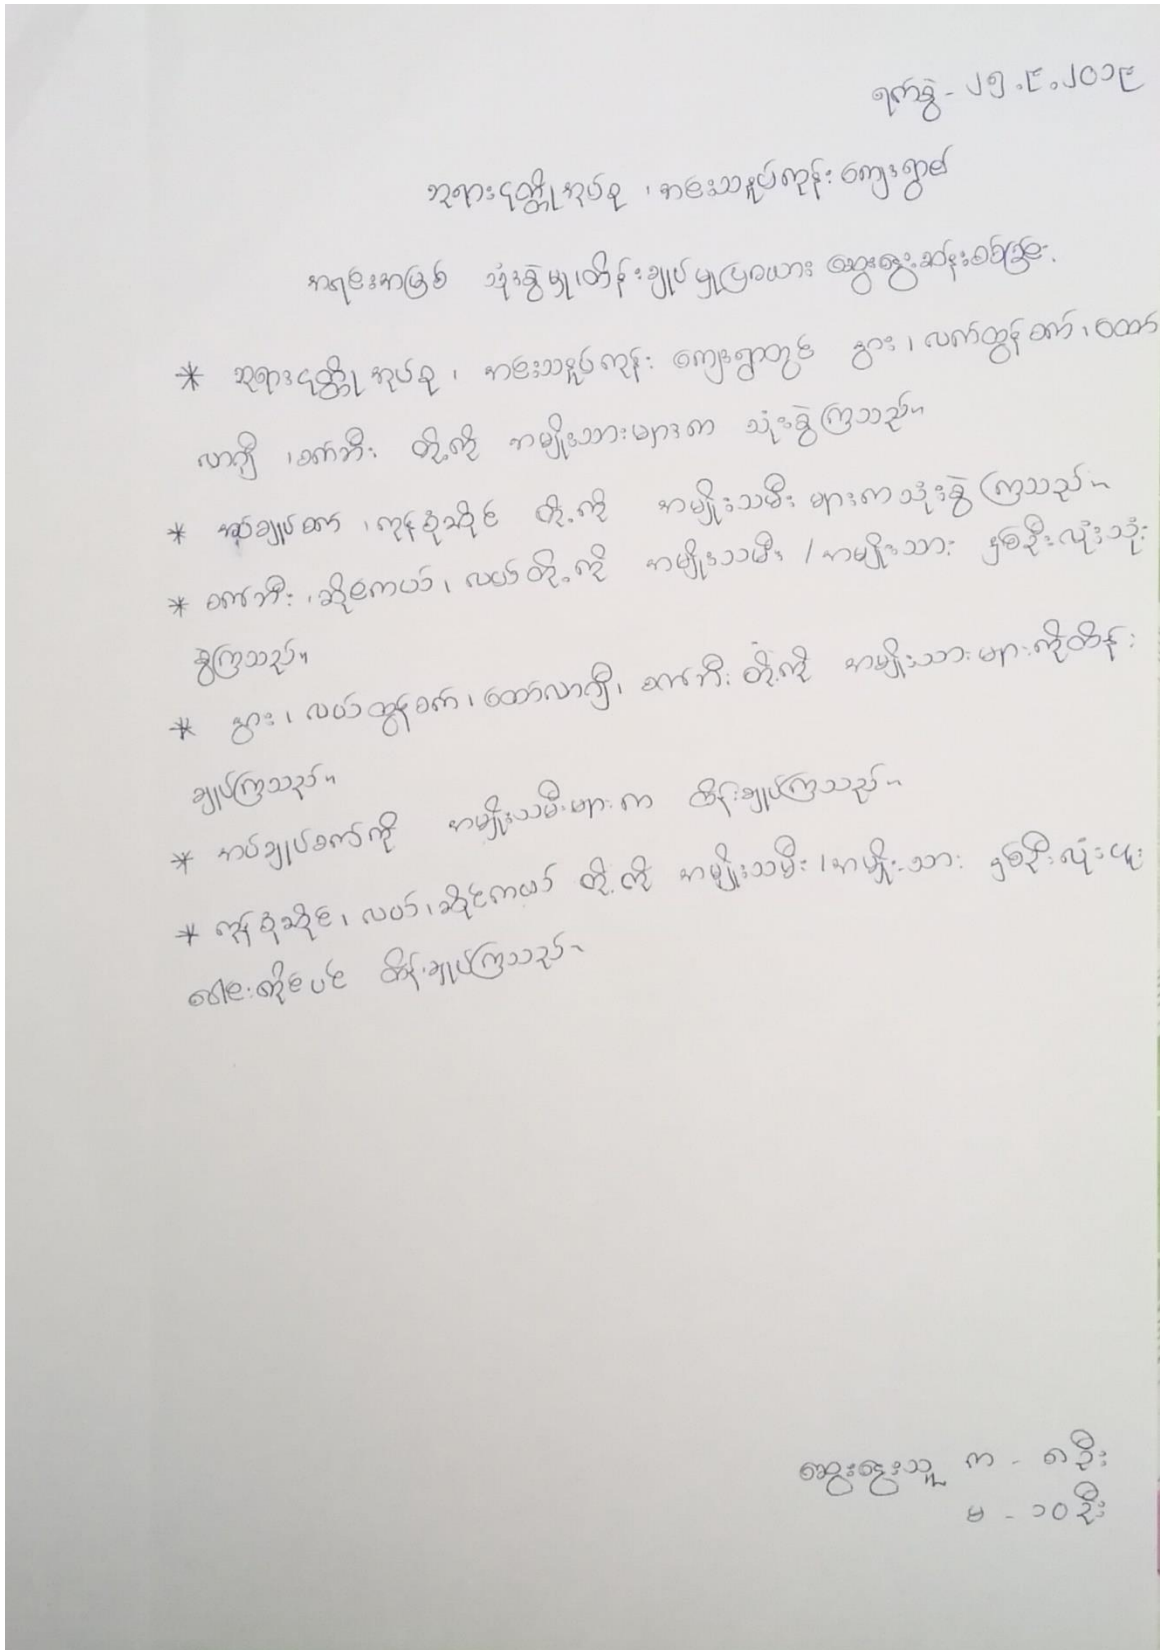 ရက်စွဲ - ၂၅.၉.၂၀၁၉
ဘုရားငုတ္တိုအုပ်စု ၊ အငးသနပ်ကုန်း ကျေးရွာ၏
အရင်းအမြစ် သုံးစွဲမှု၊ ထိန်းချုပ်မှုပြဇယား ဆွေးနွေးဆန်းစစ်ခြင်း
* ဘုရားငုတ္တိုအုပ်စု ၊ ကျေးရွာတွင် နွား ၊ လက်ထွန်စက် ၊ ထော်
လာဂျီ ၊ စက်ဘီး တို့ကို အမျိုးသားများက သုံးစွဲကြသည်။
* အပ်ချုပ်စက် ၊ ကုန်စုံဆိုင် တို့ကို အမျိုးသမီး များကသုံးစွဲကြသည်။
* စက်ဘီး ၊ ဆိုင်ကယ် ၊ လယ်တို့ကို အမျိုးသမီး / အမျိုးသား နှစ်ဦးလုံးသုံး
စွဲကြသည်။
* နွား ၊ လယ်ထွန်စက် ၊ ထော်လာဂျီ ၊ စက်ဘီး တို့ကို အမျိုးသားများကိုထိန်း
ချုပ်ကြသည်။
* အပ်ချုပ်စက်ကို အမျိုးသမီးများက ထိန်းချုပ်ကြသည်။
* ကုန်စုံဆိုင် ၊ လယ် ၊ ဆိုင်ကယ် တို့ကို အမျိုးသမီး / အမျိုးသား နှစ်ဦးလုံးပူး
ပေါင်းကိုင်ပင် ထိန်းချုပ်ကြသည်။
ဆွေးနွေးသူ က - ၈ဦး
မ - ၁၀ဦး